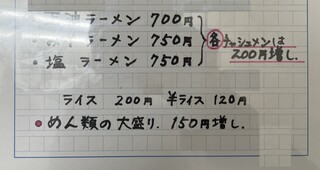 ラーメン 700円
ラーメン 750円
・塩 ラーメン 750円
各チャシューメンは
200円増し.
ライス 200円 半ライス 120円
●めん類の大盛り. 150円増し.